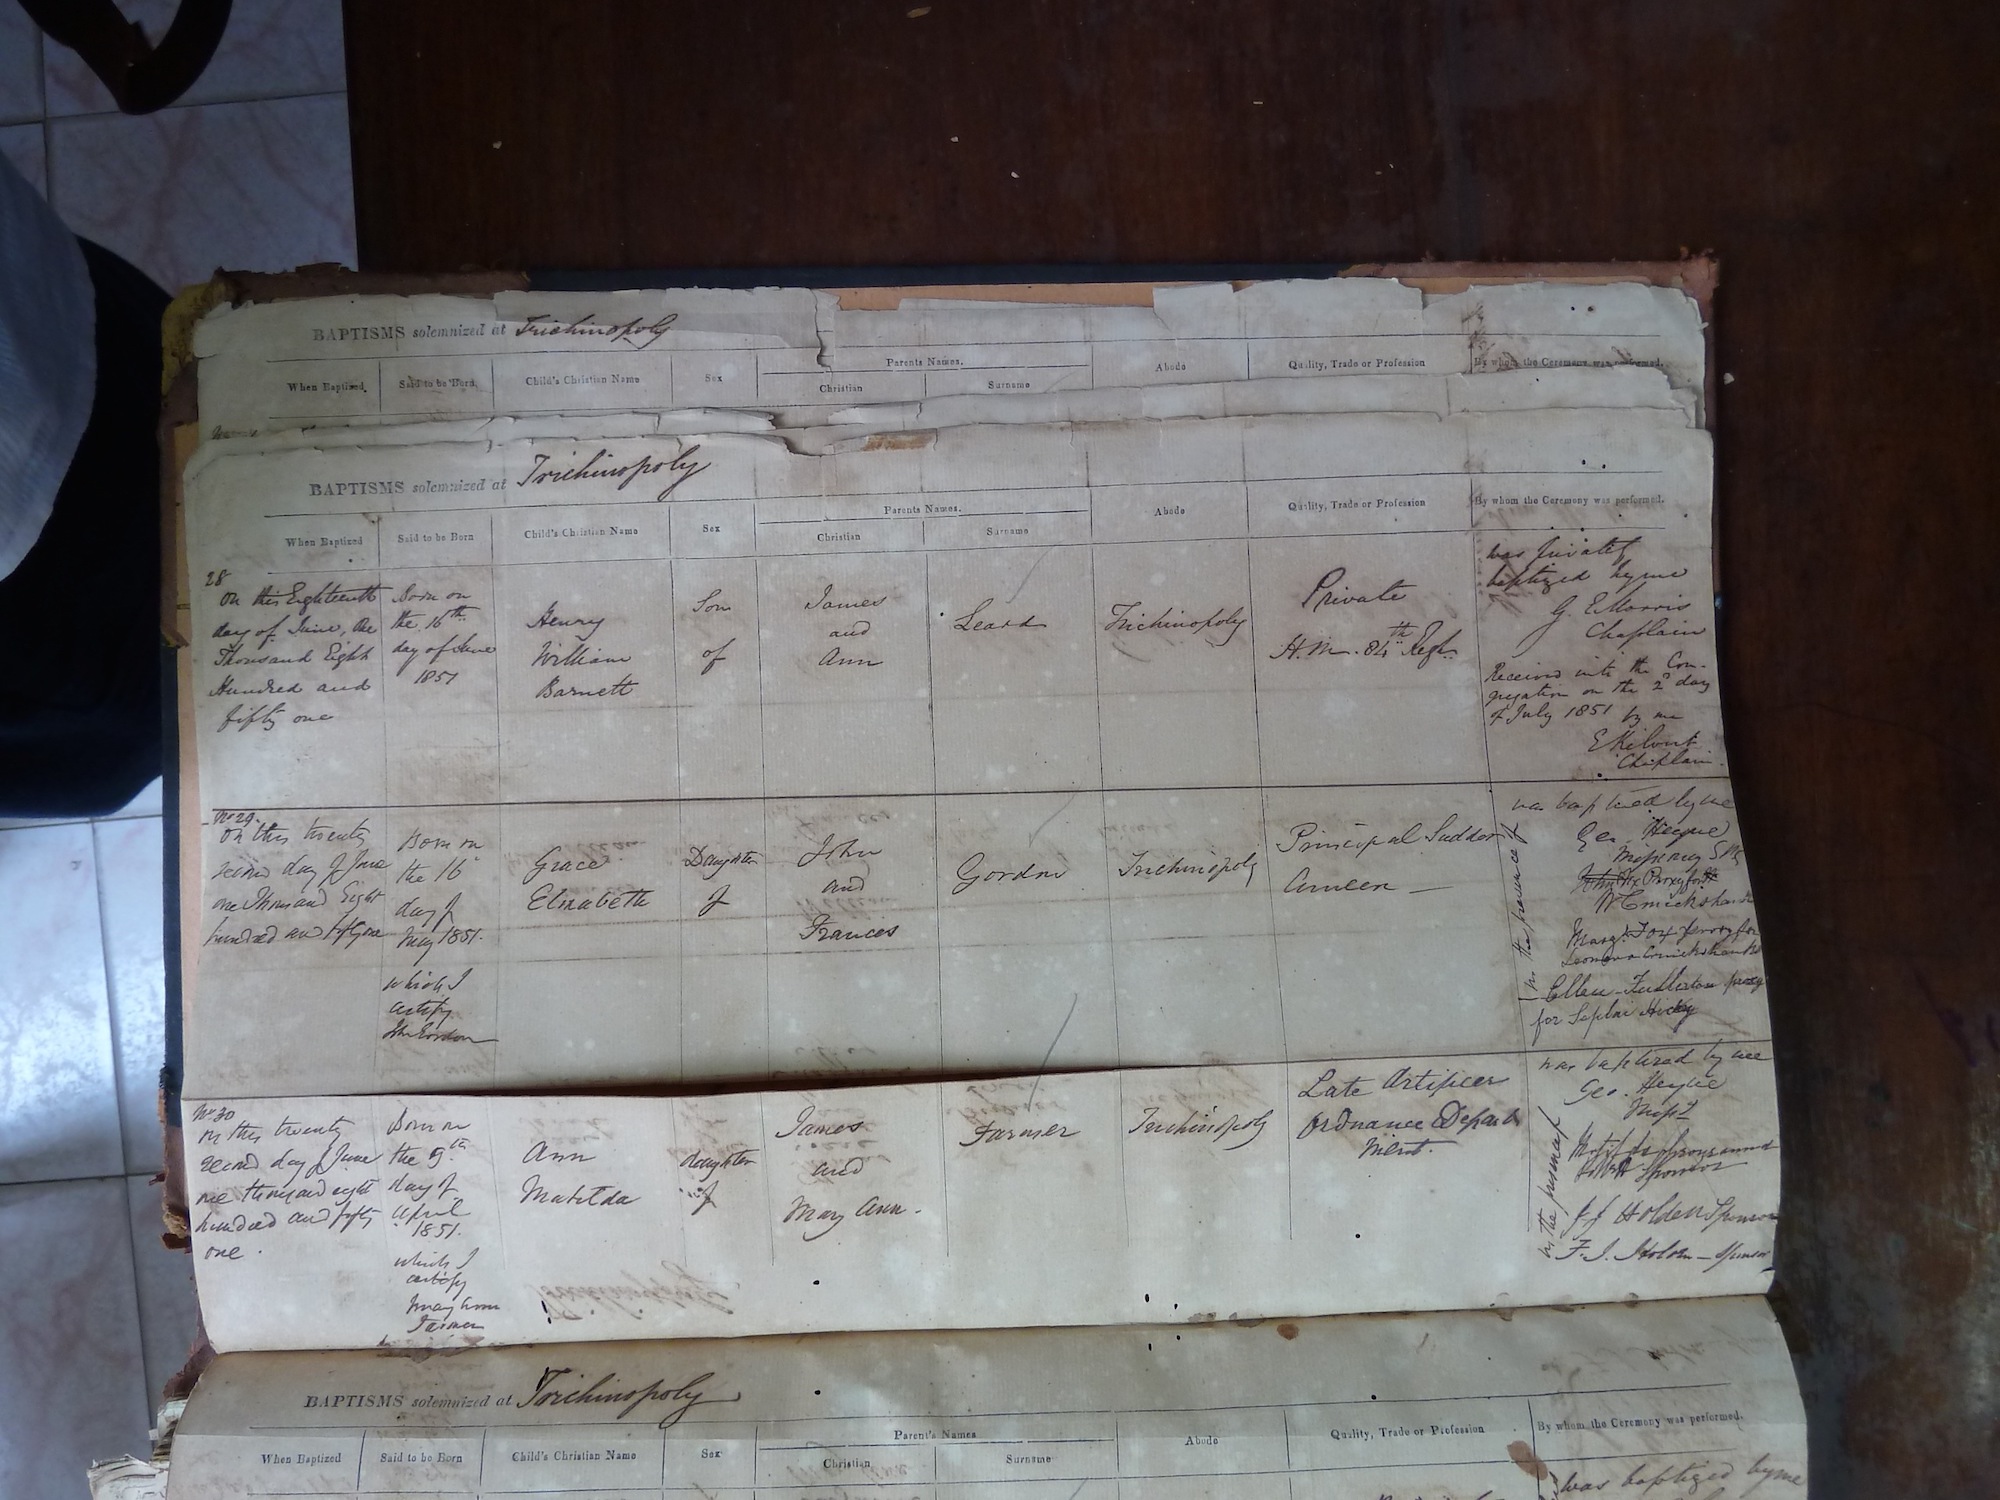 BAPTISMS solemnized at Trichinopoly
When Baptized.
Said to be Born.
Child's Christian Name
Sex
Parents Names.
Christian
Surname
Abode
Quality, Trade or Profession
By whom the Ceremony was performed.
BAPTISMS solemnized at Trichinopoly
When Baptized
Said to be Born
Child's Christian Name
Sex
Parents Names.
Christian
Surname
Abode
Quality, Trade or Profession
By whom the Ceremony was performed.
28
On this Eighteenth
day of June, One
Thousand Eight
Hundred and
fifty one
Born on
the 16th
day of June
1851
Henry
William
Barnett
Son
of
James
and
Ann
Trichinopoly
Private
H.M. 84th Regt.
was privately
baptized by me
G. E. Morris
Chaplain
Received into the Con-
gregation on the 2d day
of July 1851 by me
Chaplain
No 29.
On this twenty
second day of June
one Thousand Eight
hundred and fifty one
Born on
the 16
day of
May 1851.
which I
certify
John Gordon
Grace
Elizabeth
Daughter
of
John
and
Frances
Gordon
Trichinopoly
Principal Sudder
Ameen
was baptized by me
Geo. Heyne
in the presence of
Ellen Fullerton proxy
for Hickey
No 30
On this twenty
second day of June
one thousand eight
hundred and fifty
one.
Born on
the 9th
day of
April
1851.
which I
certify
Mary Ann
Farmer
Ann
Matilda
daughter
of
James
and
Mary Ann.
Farmer
Trichinopoly
Late Artificer
Ordnance Depart
ment.
was baptized by me
Geo. Heyne
in the presence of
Sponsor
J J Holden Sponsor
Sponsor
BAPTISMS solemnized at Trichinopoly
When Baptized
Said to be Born
Child's Christian Name
Sex
Parent's Names
Christian
Surname
Abode
Quality, Trade or Profession
By whom the Ceremony was performed.
was baptized by me